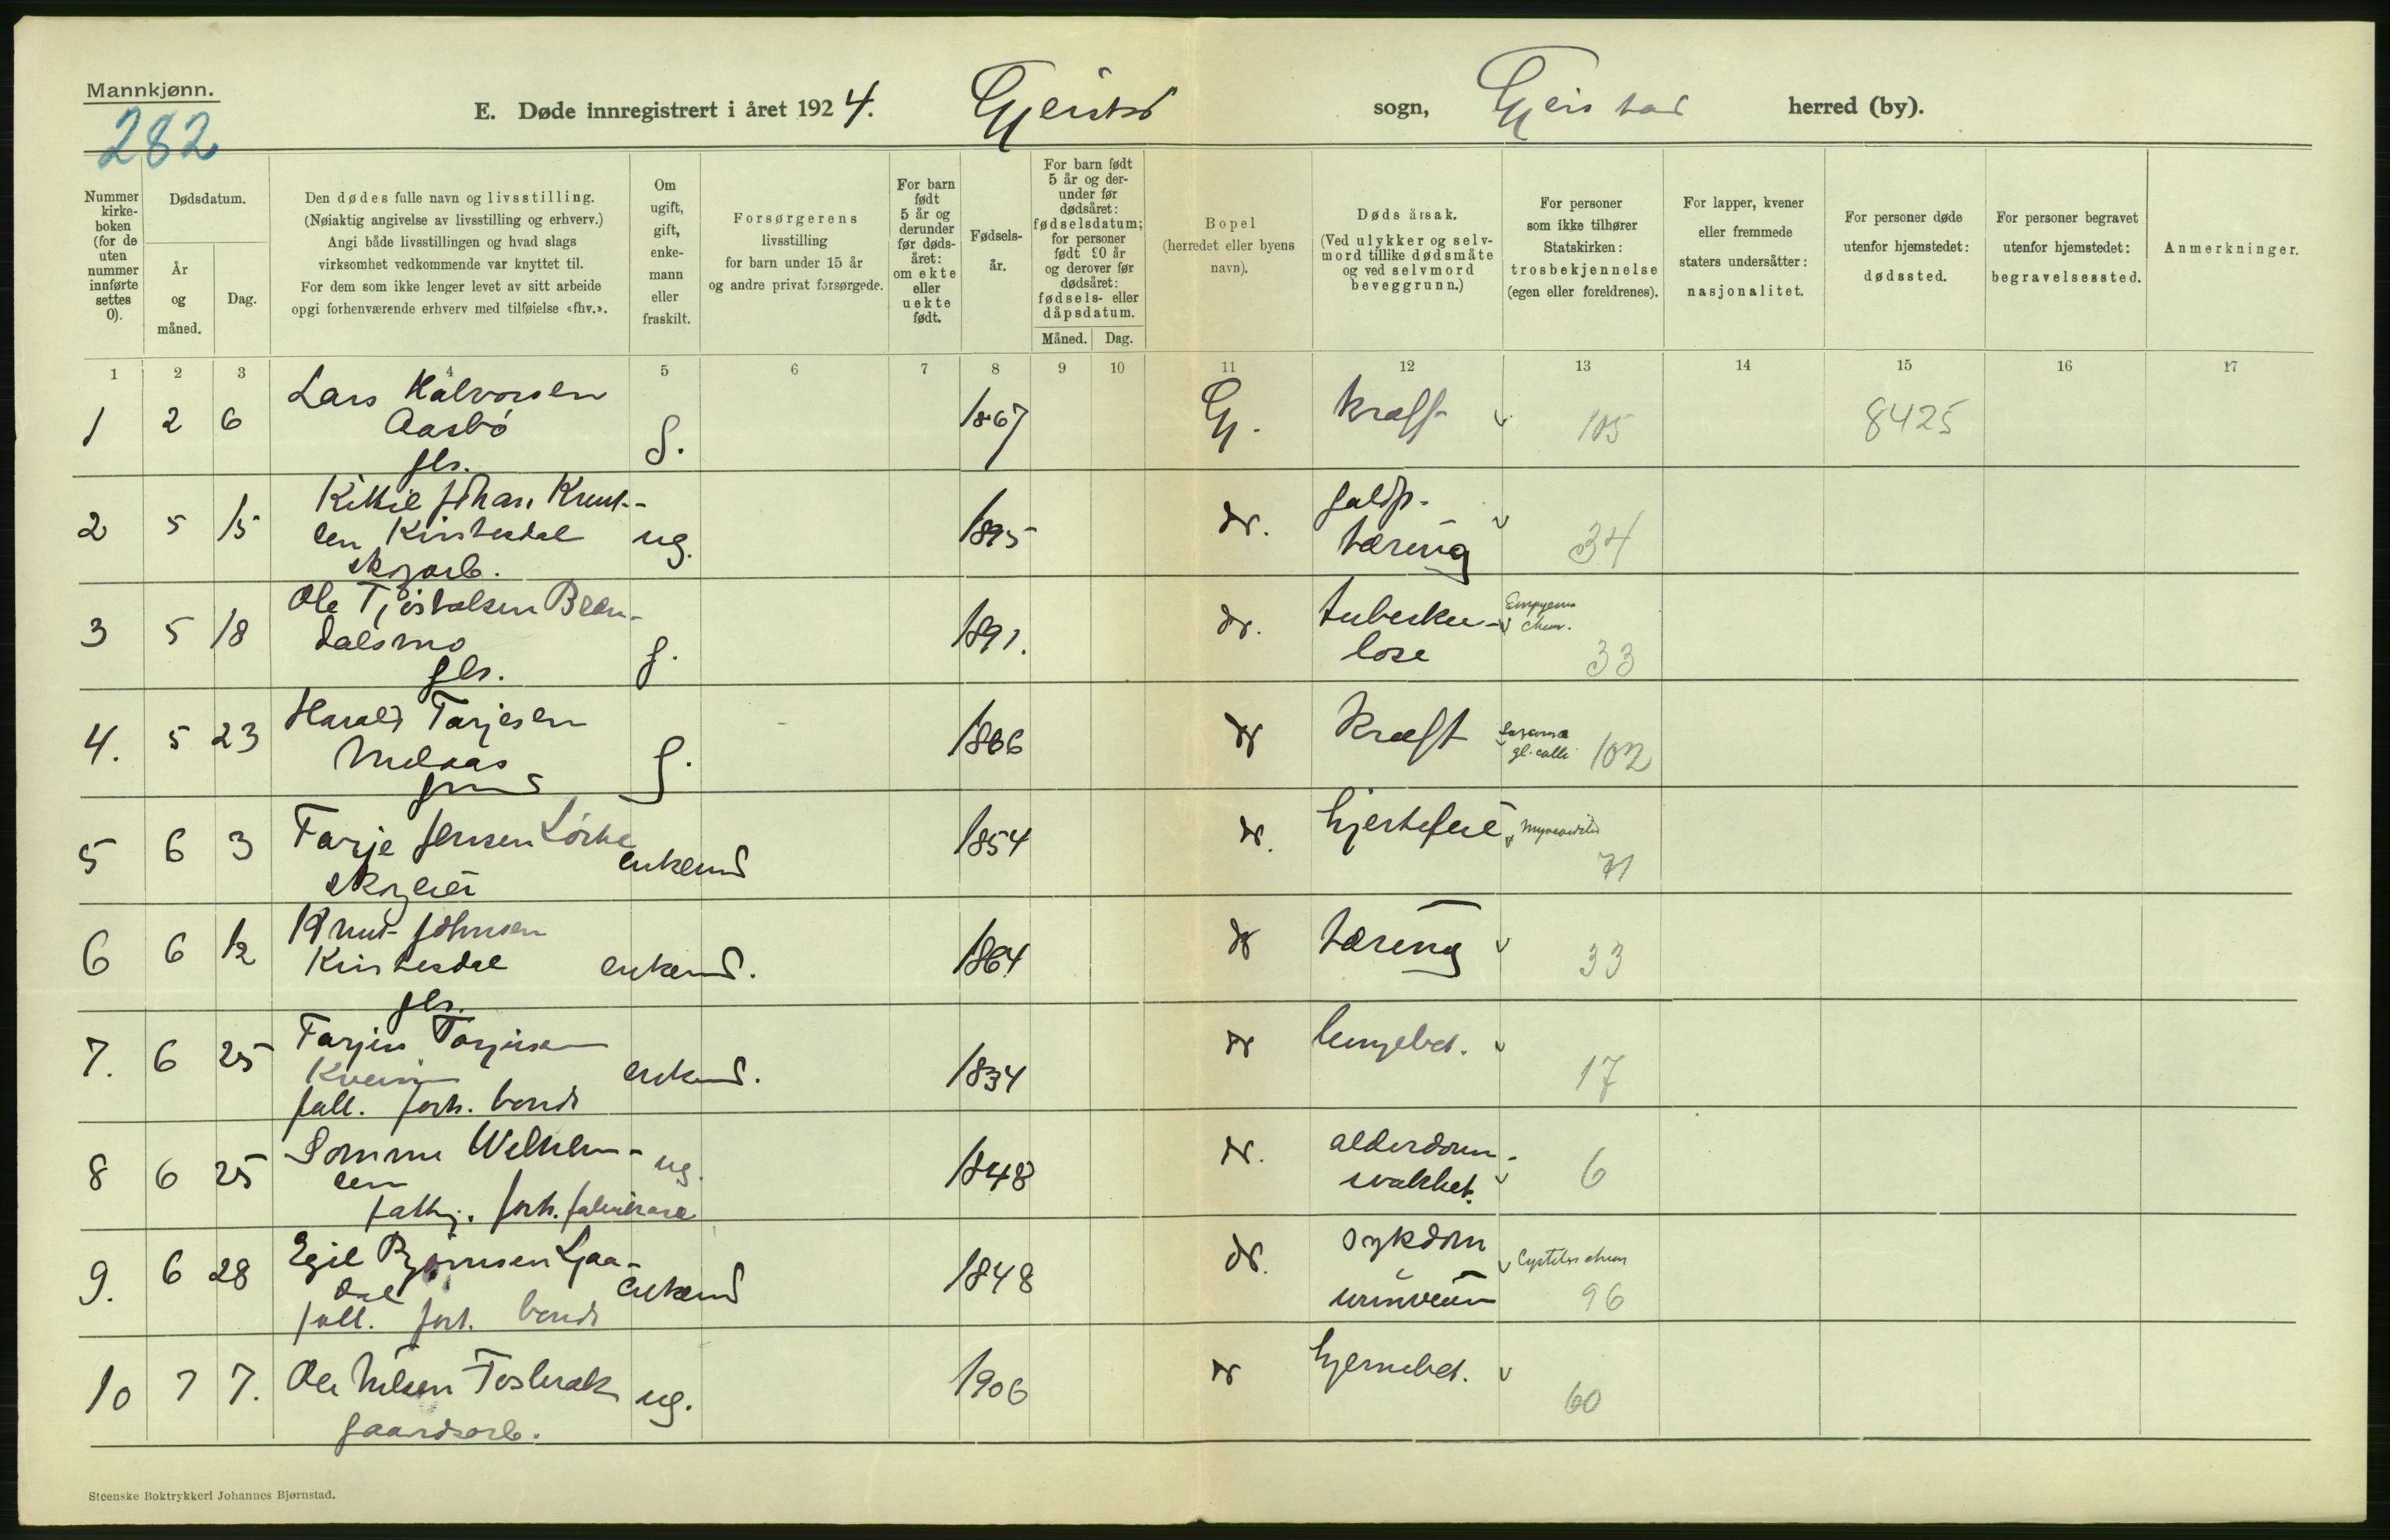 Mannkjønn.
282
E. Døde innregistrert i året 1924. Gjerstad sogn, Gjerstad herred (by).
Nummer kirke-boken (for de uten nummer innførte settes 0).
Dødsdatum.
År og måned.
Dag.
Den dødes fulle navn og livsstilling.
(Nøiaktig angivelse av livsstilling og erhverv.)
Angi både livsstillingen og hvad slags
virksomhet vedkommende var knyttet til.
For dem som ikke lenger levet av sitt arbeide
opgi forhenværende erhverv med tilføielse «fhv.».
Om ugift, gift, enke-mann eller fraskilt.
Forsørgerens
livsstilling
for barn under 15 år
og andre privat forsørgede.
For barn født 5 år og derunder før døds-året: om ekte eller uekte født.
Fødsels-år.
For barn født 5 år og der-under før dødsåret: fødselsdatum; for personer født 90 år og derover før dødsåret: fødsels- eller dåpsdatum.
Måned. Dag.
Bopel
(herredet eller byens
navn).
Døds årsak.
(Ved ulykker og selv-
mord tillike dødsmåte
og ved selvmord
beveggrunn.)
For personer
som ikke tilhører
Statskirken:
trosbekjennelse
(egen eller foreldrenes).
For lapper, kvener
eller fremmede
staters undersåtter:
nasjonalitet.
For personer døde
utenfor hjemstedet:
dødssted.
For personer begravet
utenfor hjemstedet:
begravelsessted.
Anmerkninger.
1 2 3 4 5 6 7 8 9 10 11 12 13 14 15 16 17
1 2 6 Lars Halvorsen 1867 Gj. kræft 105 8425
Aasbø g.
2 5 15 Kittil Johan Knut- 1895 do. galop.
sen Kirstesdal ug. tæring 34
skogarb.
3 5 18 Ole Tjøstolsen Bren- 1891. do. tuberku- Empyem
dalsmo g. lose chron. 33
4. 5 23 Harald Tarjesen 1866 do kræft
g. gl. colli 102
5 6 3 Tarje Jensen 1854 do. hjertefeil
skogeier enkemd 71
6 6 12 Knut Johnsen 1864 do tæring 33
Kirstesdal enkemd.
7. 6 25 Tarjei Tarjeisen 1834 do lungebet. 17
enkemd.
forh. bonde
8 6 25 ug. 1848 do. alderdom- 6
sen svakhet.
forh.
9. 6 28 Egil Bjørnsen 1848 do. sykdom Cystitis chron
dal enkemd urinveien 96
forh. bonde
10 7 7. Ole Nilsen ug. 1906 do hjernebet. 60
gaardsarb.
Steenske Boktrykkeri Johannes Bjørnstad.